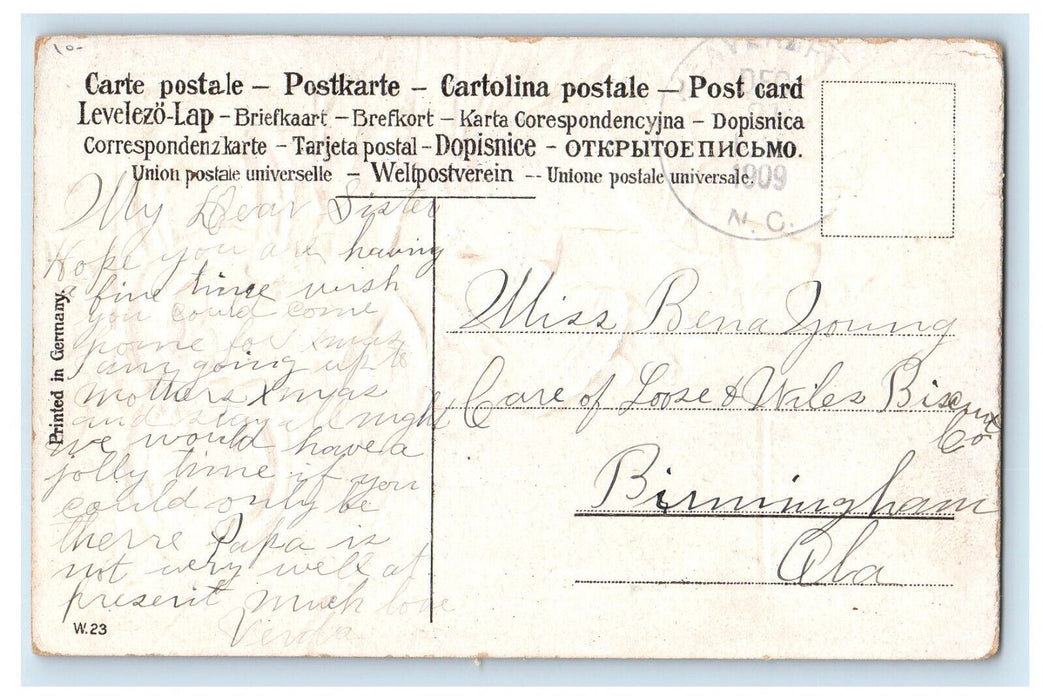 10-
Carte postale – Postkarte – Cartolina postale – Post card
Levelezö-Lap – Briefkaart – Brefkort – Karta Corespondencyjna – Dopisnica
Correspondenzkarte – Tarjeta postal – Dopisnice – ОТКРЫТОЕ ПИСЬМО.
Union postale universelle – Weltpostverein -- Unione postale universale.
DEC
1909
N. C.
My Dear Sister
Hope you are having
a fine time wish
you could come
home for xmas
I am going up to
mothers Xmas
and stay all night
we would have a
jolly time if you
could only be
therre Papa is
not very well at
present much love
Printed in Germany.
W. 23
Miss Bena Young
Care of Loose & Wiles Biscuit
Co
Birmingham
Ala